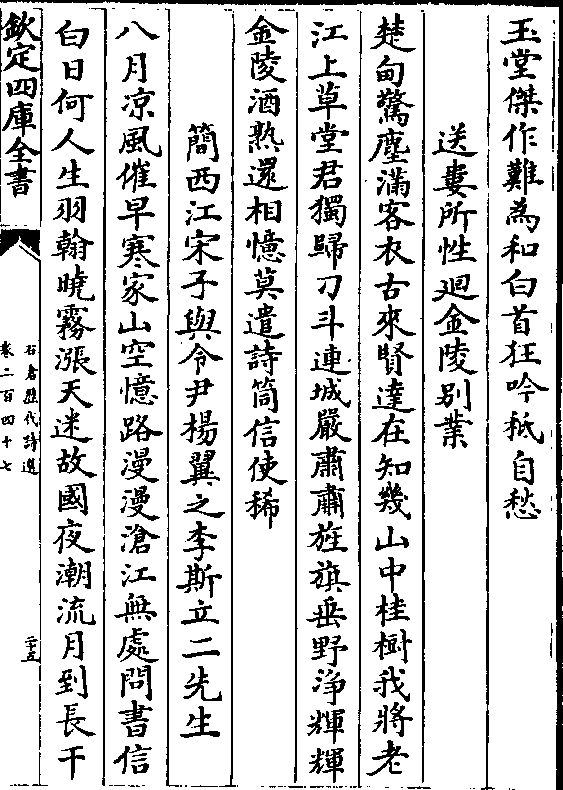 玉堂傑作難為和白首狂吟秪自愁
送婁所性迴金陵别業
楚甸驚塵滿客衣古來賢達在知幾山中桂樹我將老
江上草堂君獨歸刁斗連城嚴肅肅旌旗垂野浄輝輝
金陵酒熟還相憶莫遣詩筒信使稀
簡西江宋子與令尹楊翼之李斯立二先生
八月凉風催早寒家山空憶路漫漫滄江無處問書信
白日何人生羽翰曉霧漲天迷故國夜潮流月到長干
欽定四庫全書
石倉歷代詩選
卷二百四十七
二十五